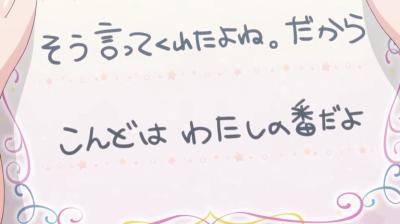 そう言ってくれたよね。だから
こんどは わたしの番だよ